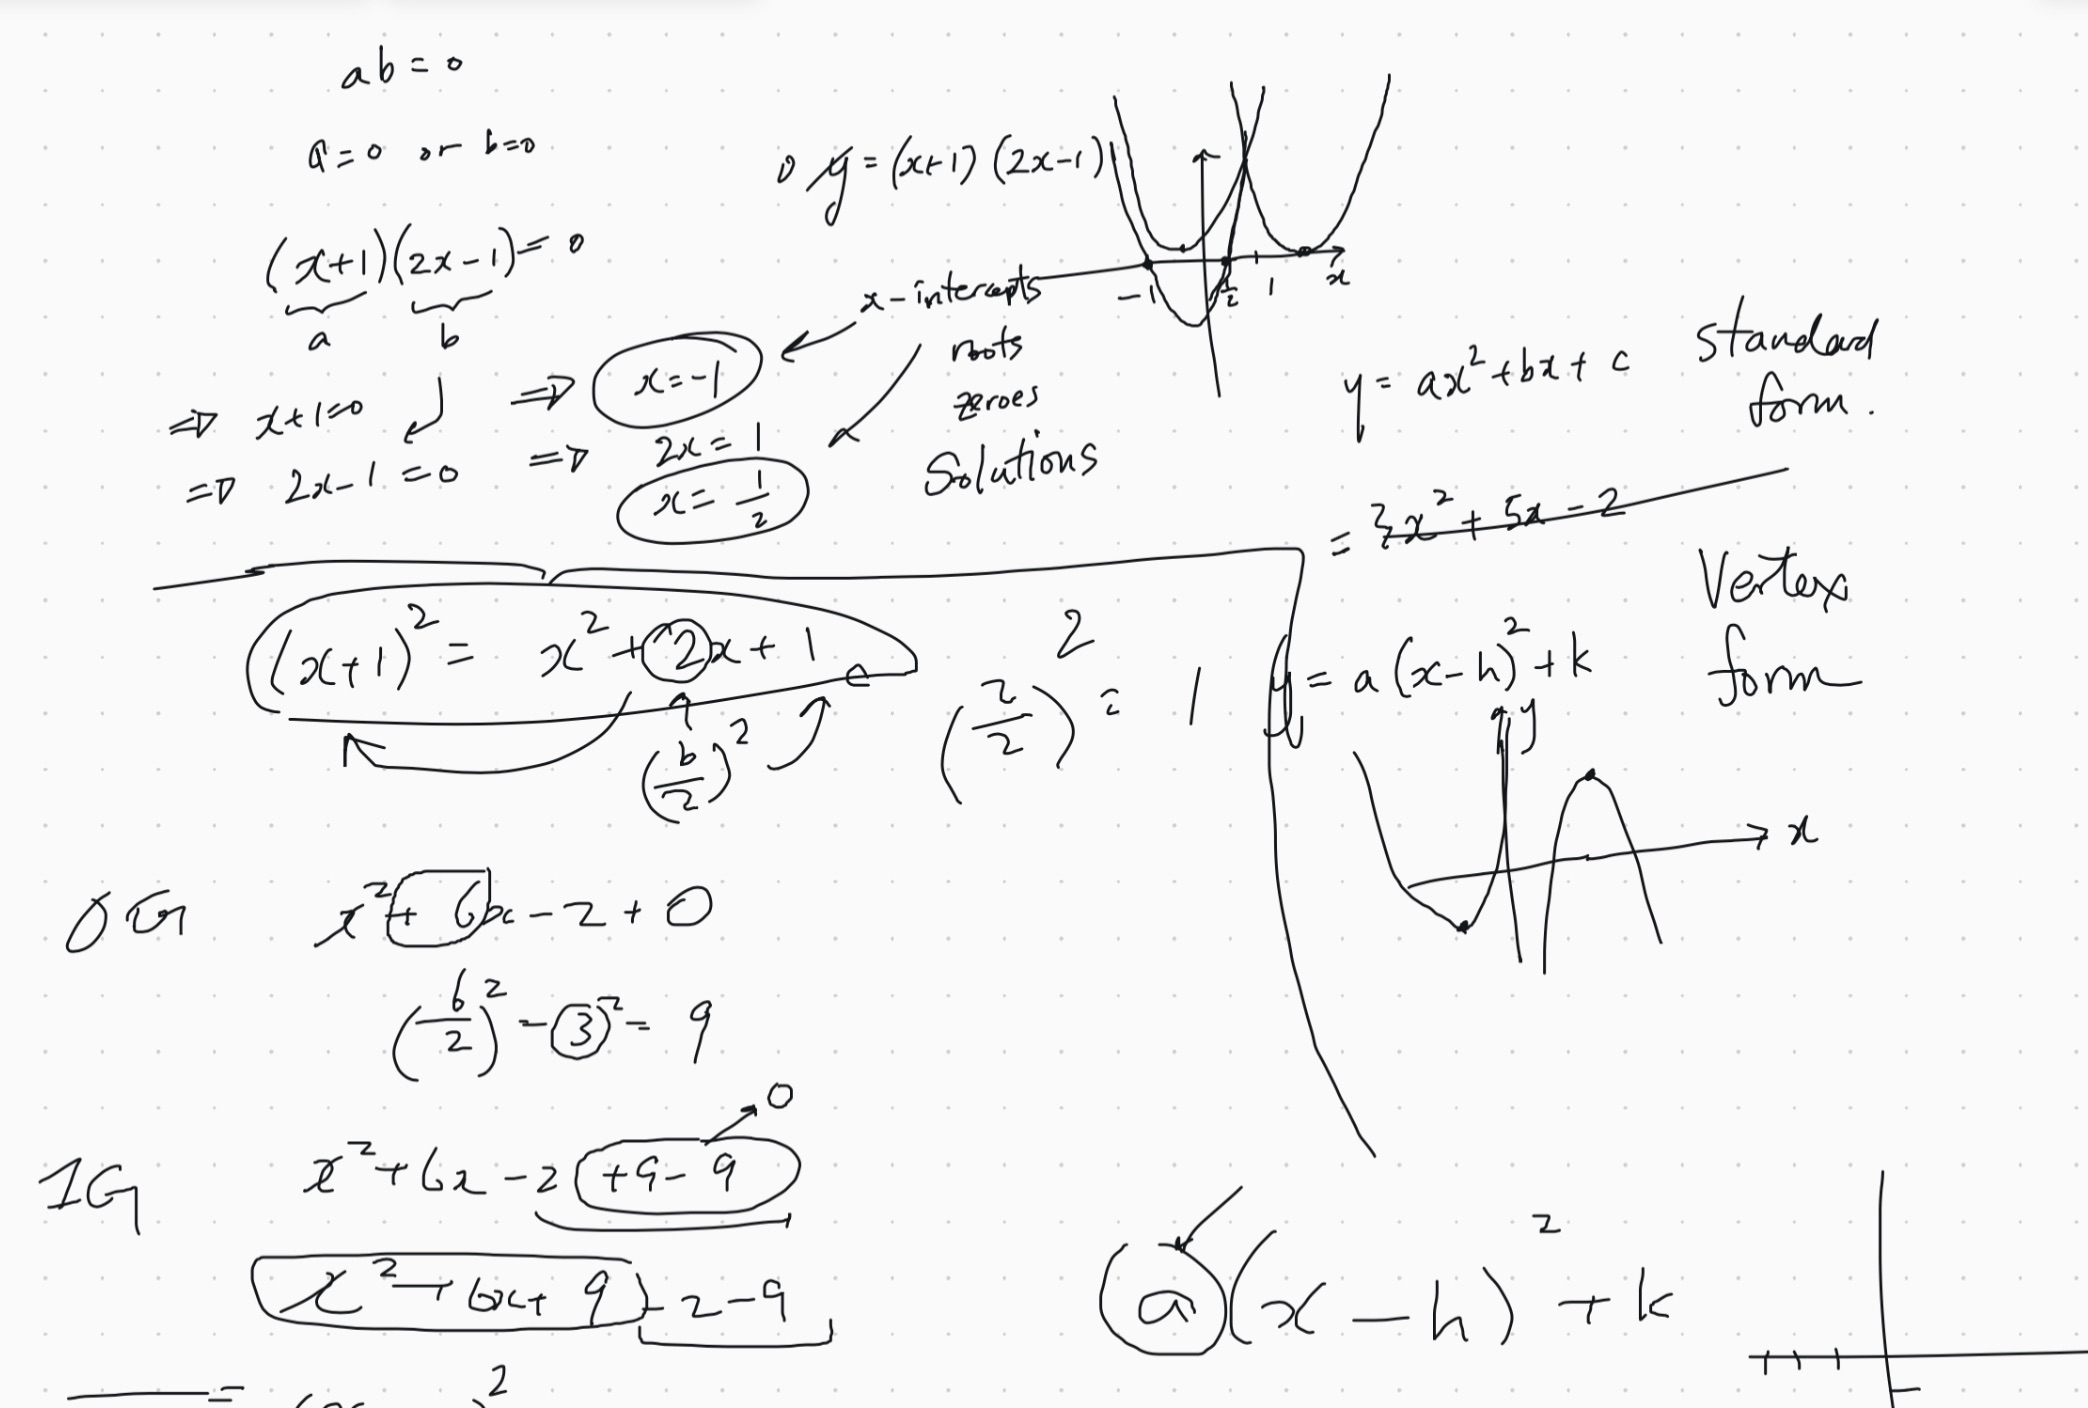 ab = 0
a = 0 or b = 0
(x+1)(2x-1) = 0
a b
⇒ x+1=0 ⇒ x=-1
⇒ 2x-1=0 ⇒ 2x=1
x=1/2
0 y = (x+1)(2x-1)
-1 1/2 1 x
x-intercepts
roots
zeroes
Solutions
y = ax²+bx+c standard form.
= 3x² + 5x - 2
Vertex form
y = a(x-h)²+k
y
x
(x+1)² = x²+2x+1
(b/2)²
(2/2)² = 1
OG x²+6x-2+0
(6/2)² = (3)² = 9
0
1G x²+6x-2+9-9
x²+6x+9-2-9
a(x-h)²+k